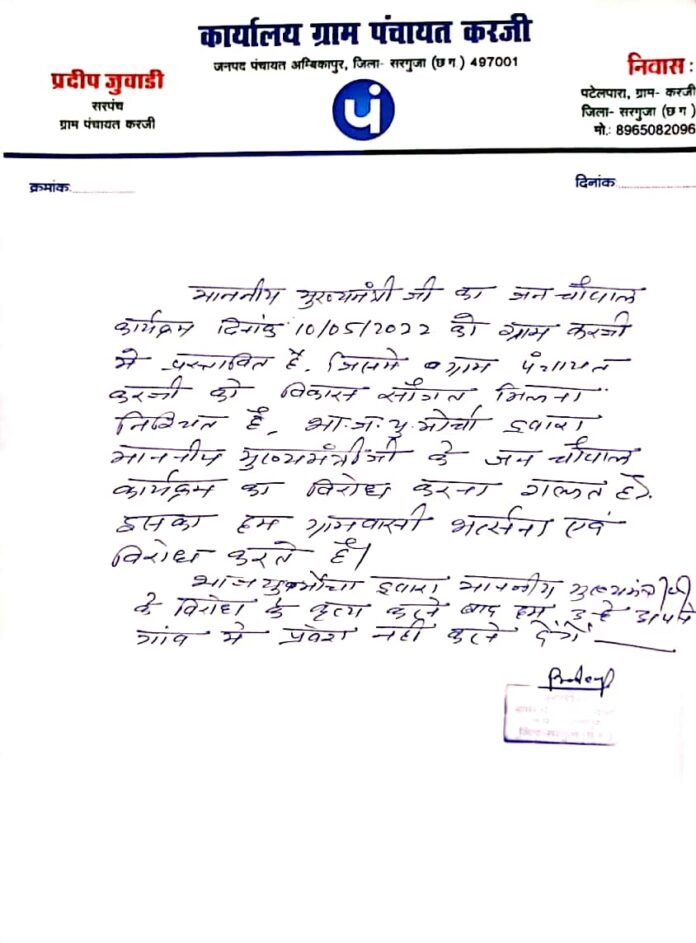 कार्यालय ग्राम पंचायत करजी
जनपद पंचायत अम्बिकापुर, जिला- सरगुजा (छ ग ) 497001
प्रदीप जुवाडी
सरपंच
ग्राम पंचायत करजी
पं
निवास :
पटेलपारा, ग्राम- करजी
जिला- सरगुजा (छ ग )
मो.: 8965082096
क्रमांक
दिनांक
माननीय मुख्यमंत्री जी का जन चौपाल
कार्यक्रम दिनांक 10/05/2022 को ग्राम करजी
मे प्रस्तावित है. जिसमे ग्राम पंचायत
करजी को विकास सौगत मिलना
निश्चित है, भा.ज.यु.मोर्चा द्वारा
माननीय मुख्यमंत्रीजी के जन चौपाल
कार्यक्रम का विरोध करना गलत है।
इसका हम ग्रामवासी भर्त्सना एवं
विरोध करते है।
भाजयुमोर्चा द्वारा माननीय मुख्यमंत्री जी
के विरोध के कृत्य बाद हम उन्हे अपने
गांव मे प्रवेश नही करने देंगें
Pradeep
जिला-सरगुजा (छ.ग.)